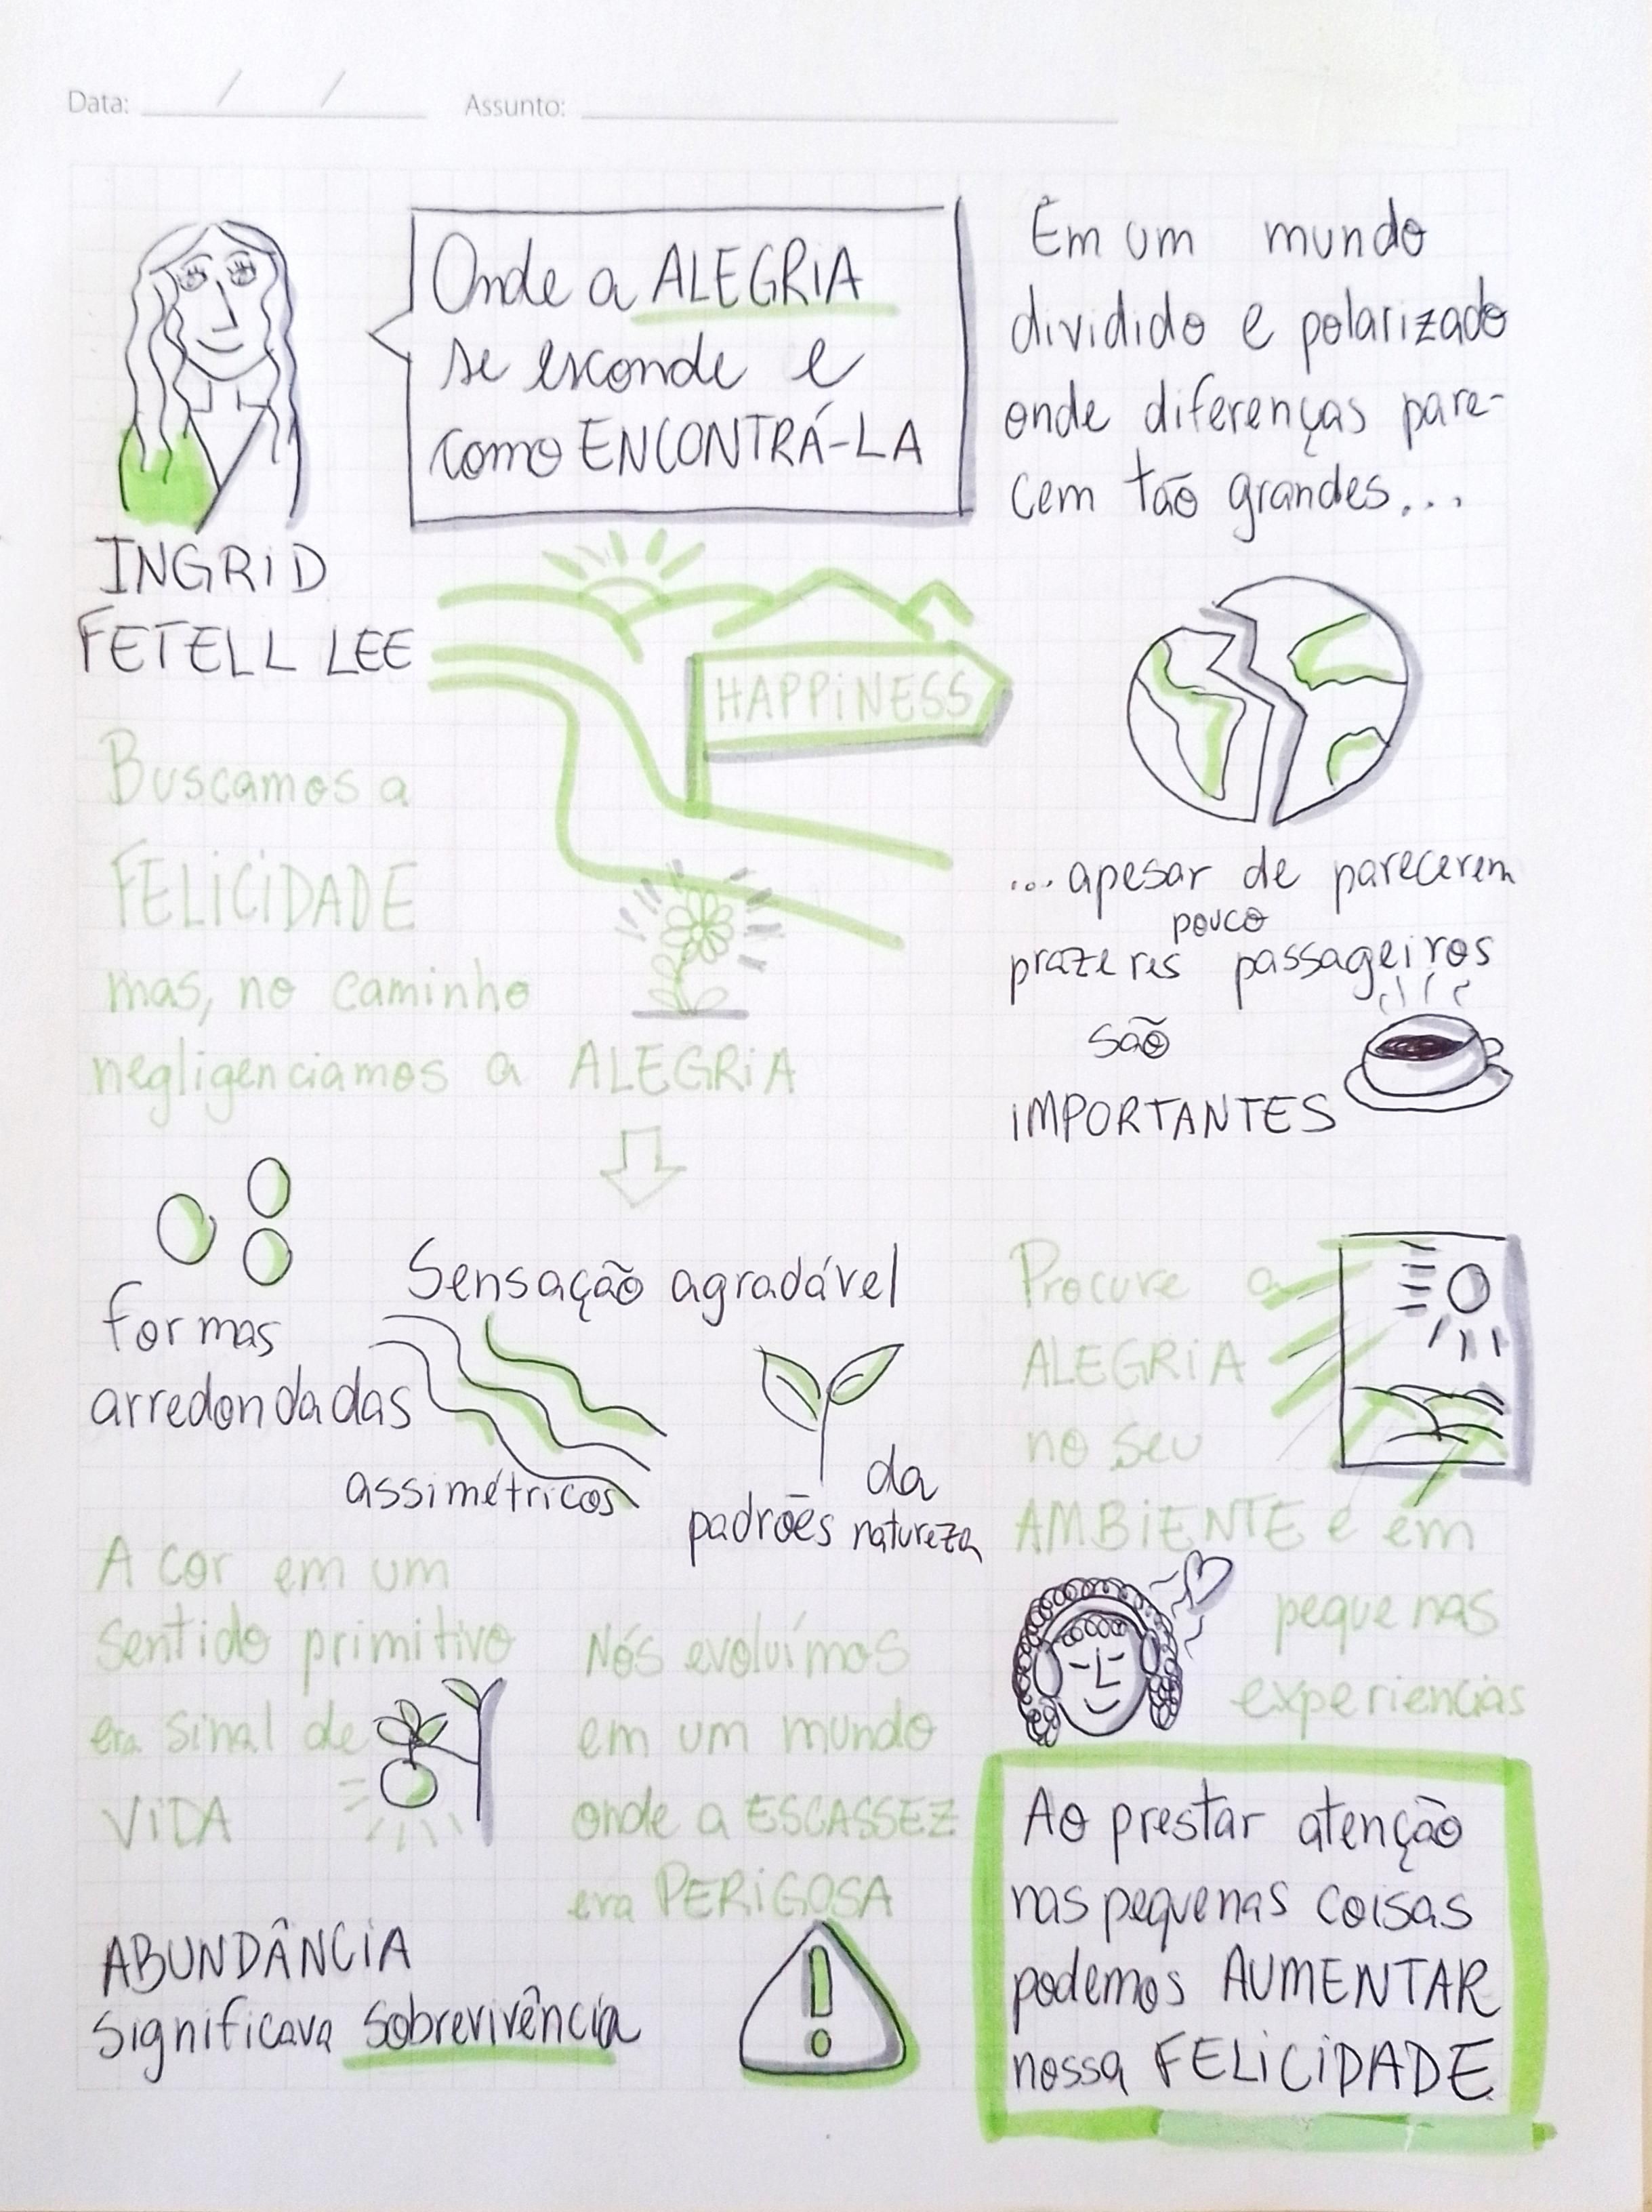 Data: ___/___/___ Assunto: ___
Onde a ALEGRIA
se esconde e
como ENCONTRÁ-LA
INGRID
FETELL LEE
HAPPINESS
Buscamos a
FELICIDADE
mas, no caminho
negligenciamos a ALEGRIA
Sensação agradável
formas
arredondadas
assimétricos
da
padrões natureza
A cor em um
sentido primitivo
era sinal de
VIDA
Nós evoluímos
em um mundo
onde a ESCASSEZ
era PERIGOSA
ABUNDÂNCIA
significava sobrevivência
!
Em um mundo
dividido e polarizado
onde diferenças pare-
cem tão grandes...
...apesar de parecerem
pouco
prazeres passageiros
são
IMPORTANTES
Procure a
ALEGRIA
no seu
AMBIENTE e em
pequenas
experiencias
Ao prestar atenção
nas pequenas coisas
podemos AUMENTAR
nossa FELICIDADE